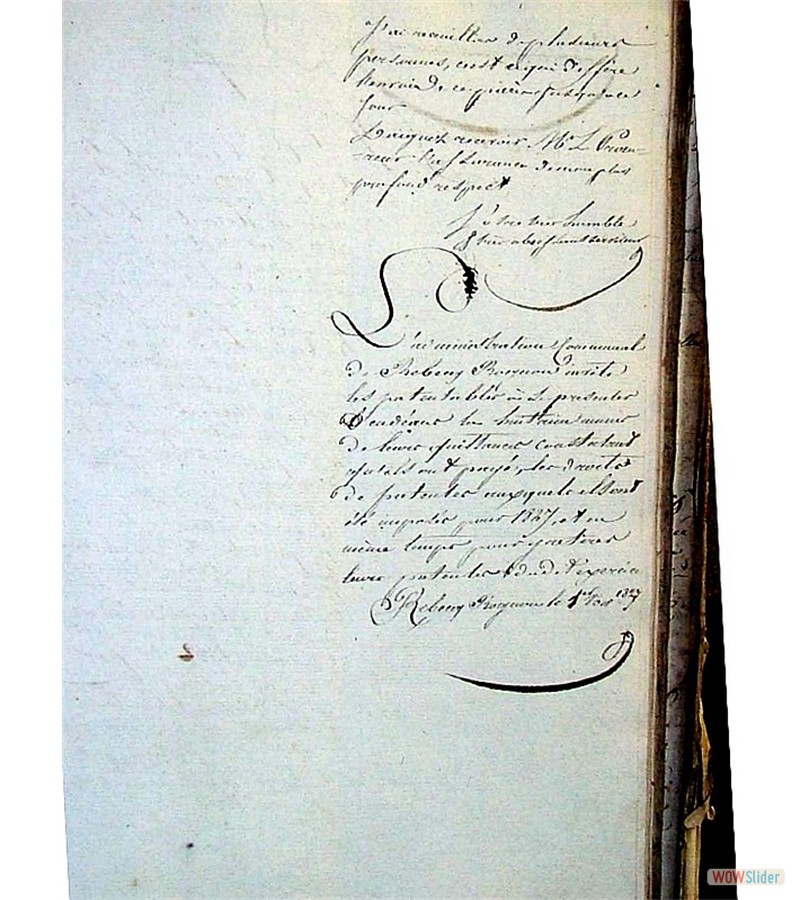 J'ai recueillies de plusieurs
personnes, c'est ce qui differe
l'envoi de ce jusqu'a ce
jour
Daignez recevoir Mr Le Procu-
reur l'assurance de mon plus
profond respect
Votre très humble
& très obeissant serviteur
L'administration Communal
de Rebecq Rognon invite
les patentables à se presenter
munis
de leurs quittances constatant
qu'ils ont payé, les droits
de patentes auxquels ils ont
été imposés pour 1827, et en
même temps pour
leurs patentes de d'Exercice
Rebecq Rognon le 1er 1827
WOWSlider